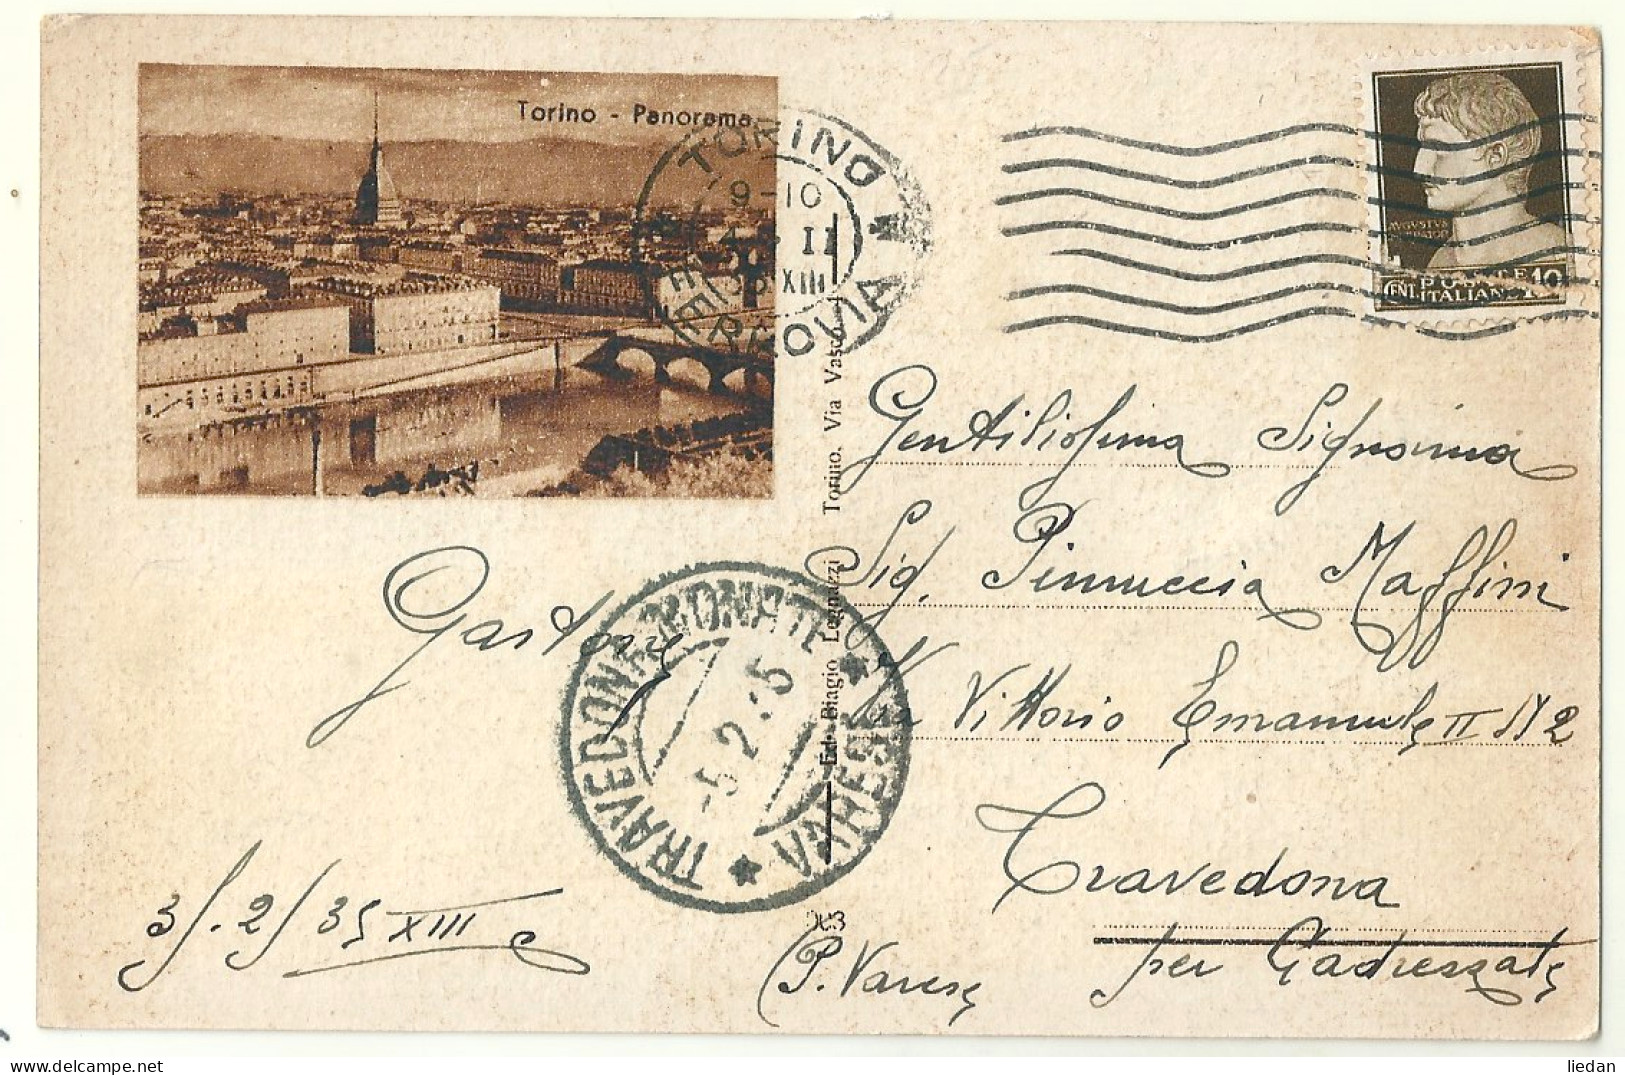 Torino - Panorama
TORINO
9-10
4 · II
35 XIII
FERROVIA
AVGVSTVS
POSTE
CENT. ITALIANE 10
Gentilissima Signorina
Sig. Pinuccia Maffini
Via Vittorio Emanuele II N 2
Travedona
per Gadrezzate
(P. Varese
Gastone
3/.2/35 XIII
TRAVEDONA MONATE
* VARESE *
-5.2.35
Ed. Biagio Legnazzi Torino. Via Vasco
liedan